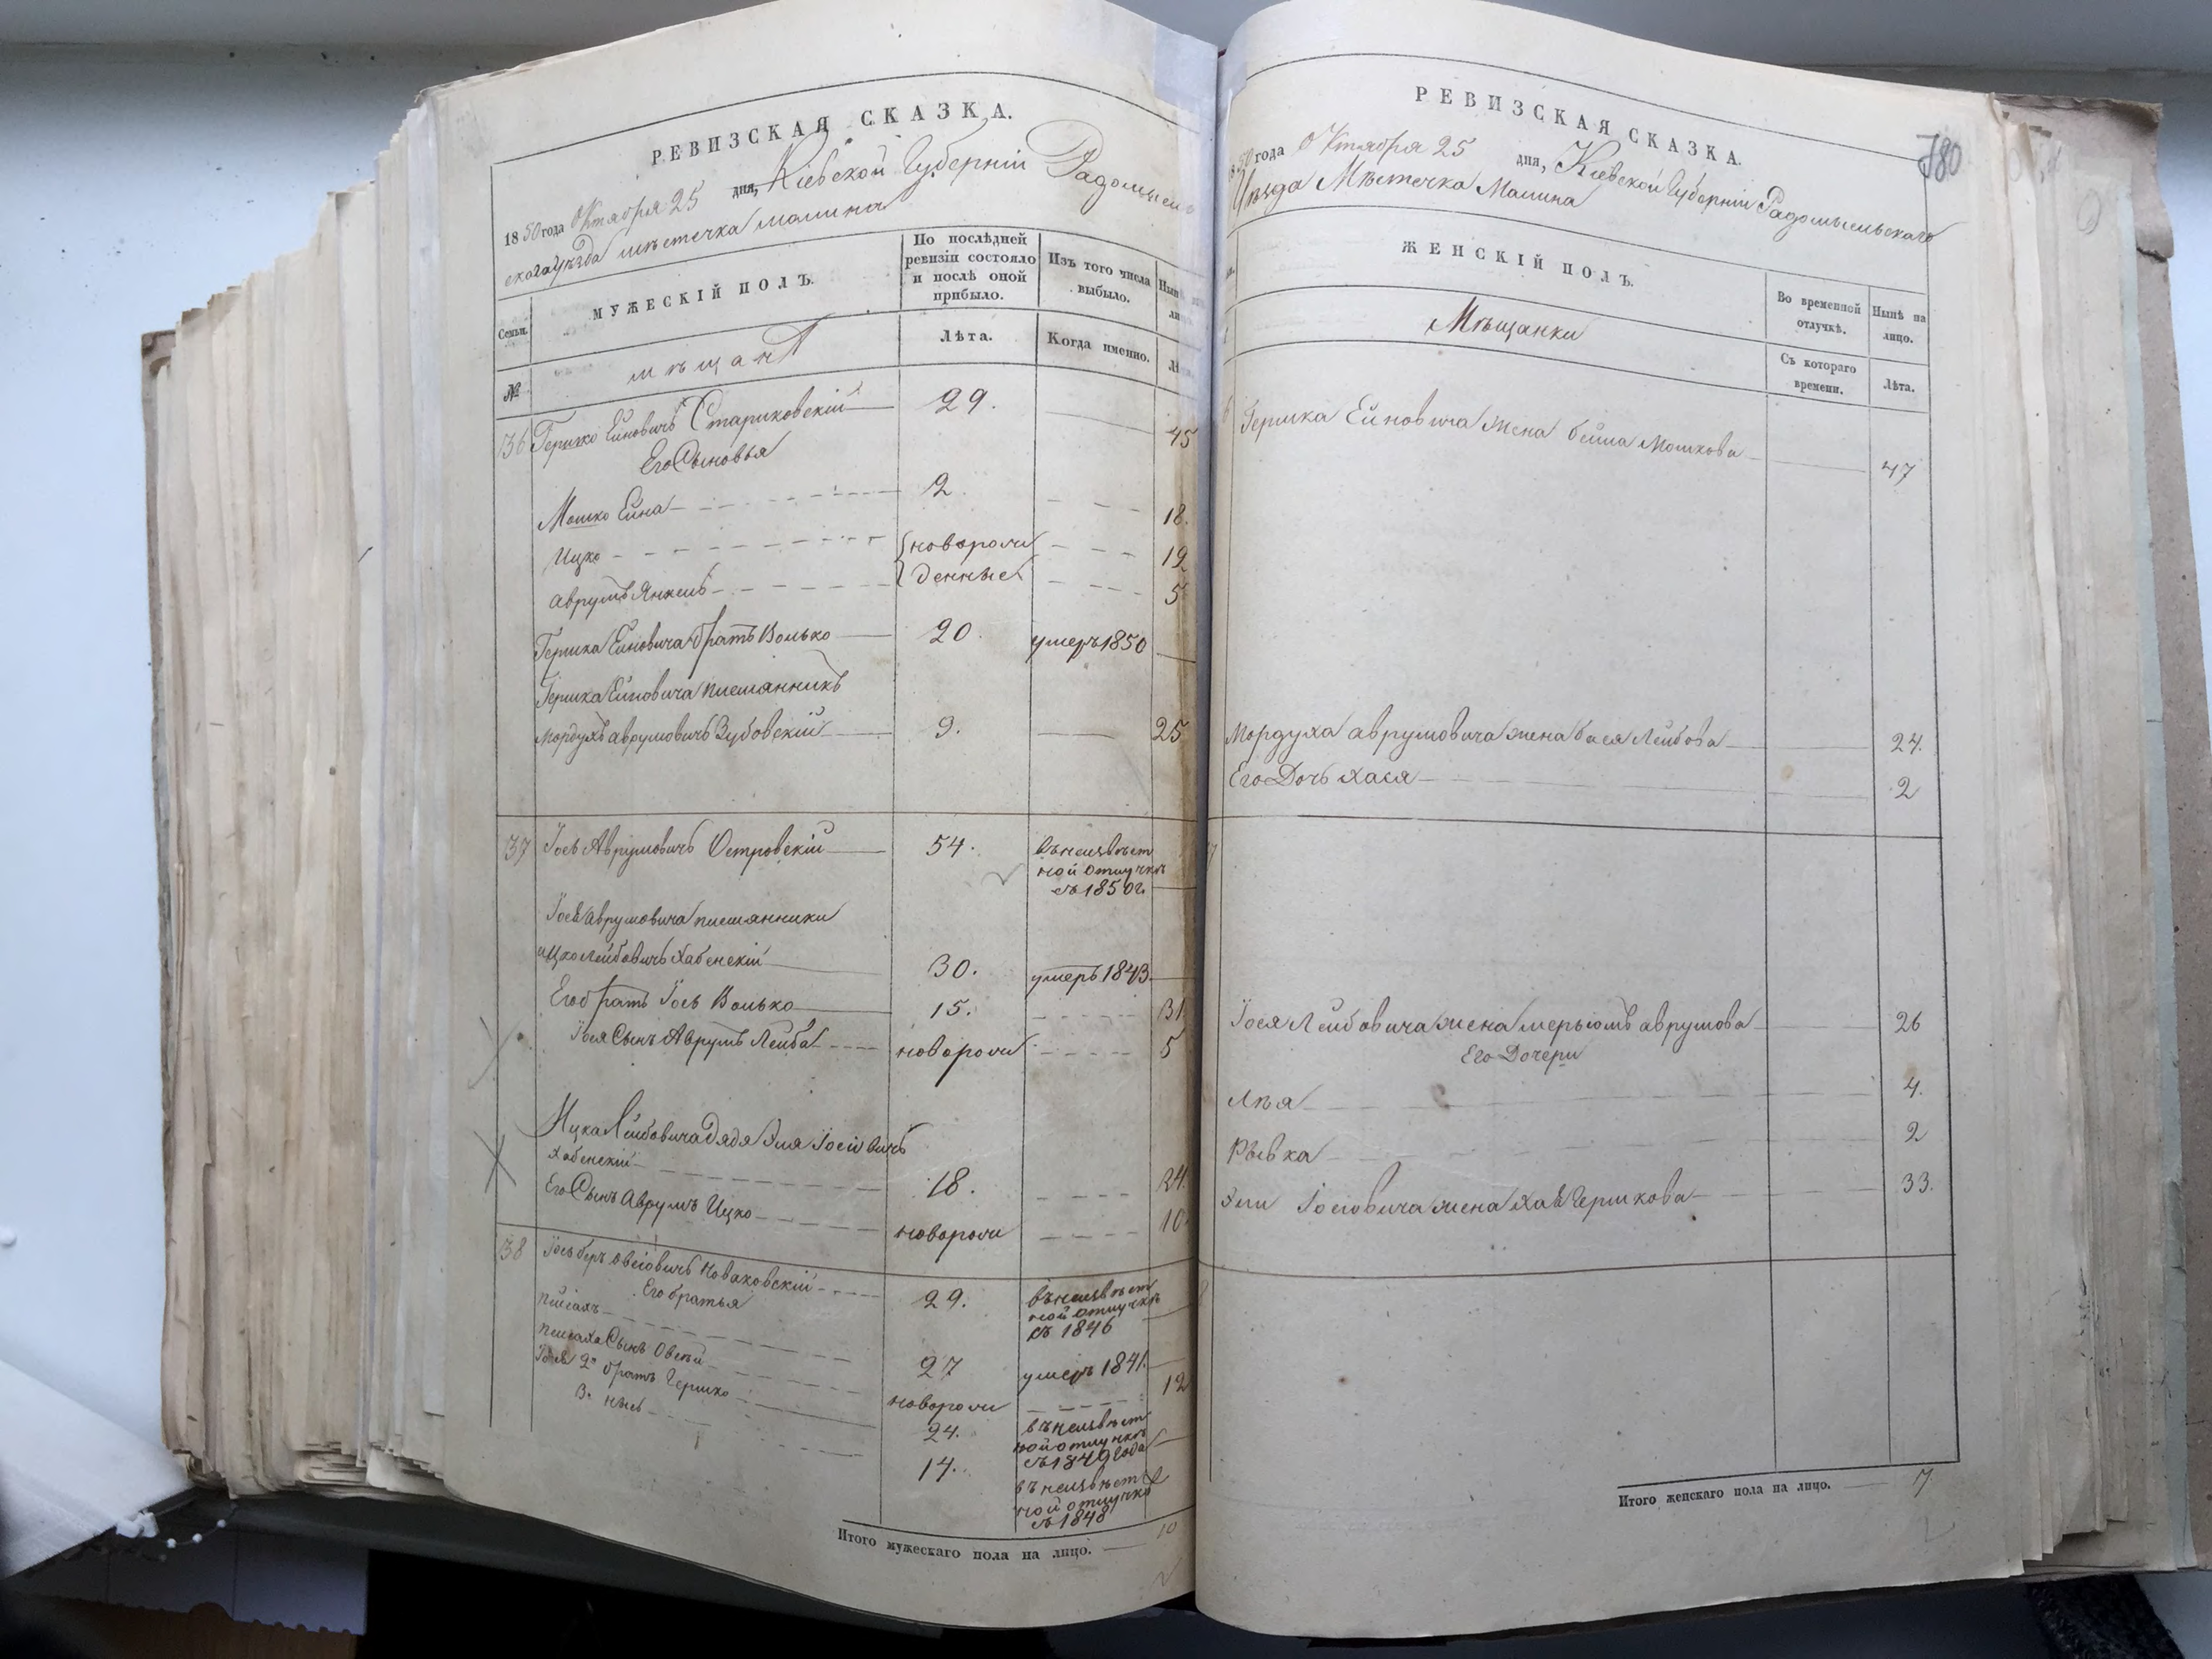 РЕВИЗСКАЯ СКАЗКА.
1850 года Октября 25 дня, Кіевской Губерніи Радомысль
скаго уѣзда мѣстечка малина
Семьи.
МУЖЕСКІЙ ПОЛЪ.
По послѣдней ревизіи состояло и послѣ оной прибыло.
Изъ того числа выбыло.
№
мѣщанъ
Лѣта.
Когда именно.
36 Гершко Ейновичъ Стариковскій 29. 45
Его Сыновья
Мошко Ейна 2 18.
Ицко новорож 19
аврумъ Янкель денные 5
Гершка Ейновича братъ Волько 20. умеръ 1850
Гершка Ейновича племянникъ
Мордухъ аврумовичъ Зубовскій 9. 25
37 Іось Аврумовичъ Островскій 54. въ неизвѣст
ной отлучкѣ
съ 1850 г.
Іося аврумовича племянники
ицко Лейбовичъ Хабенскій 30. умеръ 1843
Его братъ Іось Волько 15. 31
Іося Сынъ Аврумъ Лейба новорож 5
Ицка Лейбовича дядя Эля Іосіовичъ
Хабенскій 18. 24.
Его Сынъ Аврумъ Ицко новорож 10
38 Іось беръ овсіовичъ Новаковскій 29. въ неизвѣст
ной отлучкѣ
съ 1846
Его братья
Пейсахъ 27 умеръ 1841.
Пейсаха Сынъ Овсѣй новорож 12
Іося 2й братъ Гершко 24. въ неизвѣст
ной отлучкѣ
съ 1849 года
3. 14. въ неизвѣст
ной отлучкѣ
съ 1848
Итого мужескаго пола на лицо. 10
РЕВИЗСКАЯ СКАЗКА.
780
1850 года Октября 25 дня, Кіевской Губерніи Радомысльскаго
Уѣзда Мѣстечка Малина
ЖЕНСКІЙ ПОЛЪ.
Во временной отлучкѣ.
Нынѣ на лицо.
Мѣщанки
Съ котораго времени.
Лѣта.
Гершка Ейновича жена бейла Мошкова 47
Мордуха аврумовича жена бася Лейбова 24.
Его Дочь Хася 2
Іося Лейбовича жена мерьямъ аврумова 26
Его Дочери
Лѣя 4.
Рывка 2
Эли Іосіовича жена Хая Гершкова 33.
Итого женскаго пола на лицо. 7